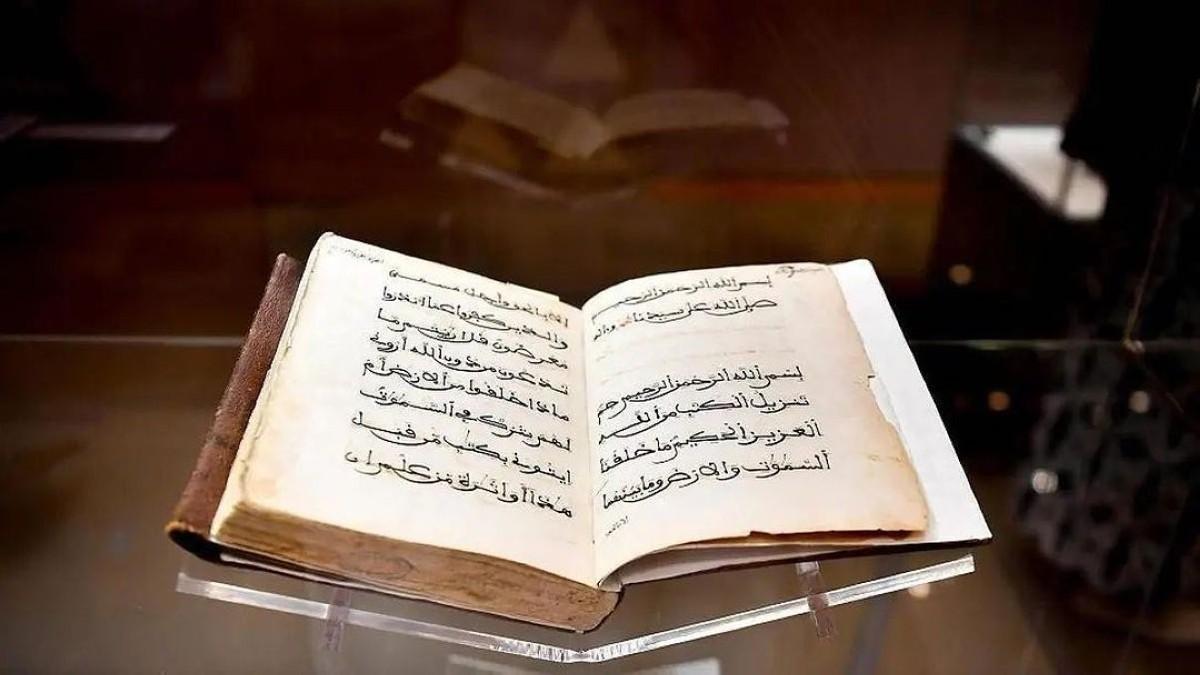 بسم الله الرحمن الرحيم
صل الله على سيدنا
بسم الله الرحمن الرحيم حم
تنزيل الكتب من الله
العزيز الحكيم ما خلقنا
السموت والارض وما بينهما
الا بالحق
الا بالحق واجل مسمى
والذين كفروا عما انذروا
معرضون قل اريتم ما
تدعون من دون الله اروني
ماذا خلقوا من الارض ام
لهم شرك في السموت
ايتوني بكتب من قبل
هذا او اثرة من علم ان